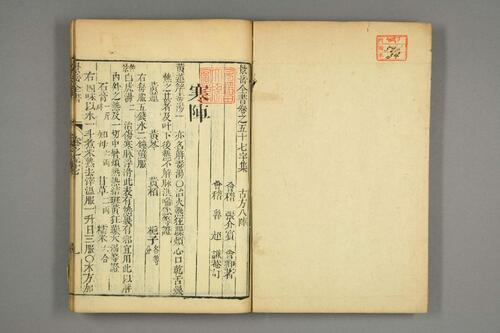 景岳全書卷之五十七宇集　古方八陣
會稽　張介賓　會卿著
會稽　魯超　謙菴訂
寒陣
黃連解毒湯一　亦名解毒湯○治火熱狂躁煩心口乾舌燥
熱之甚者及吐下後熱不解脉洪喘急等證
黃連　黃芩　黃栢　梔子各等分
右每服五錢水二鍾煎服
白虎湯二　治傷寒脉浮滑此表有熱裏有邪宜用此以解
內外之熱及一切中暍煩熱熱結斑黃狂躁大渴等證
石膏　知母　甘草　糯米
右四味以水一斗煮米熟去滓溫服一升日三服○本方加